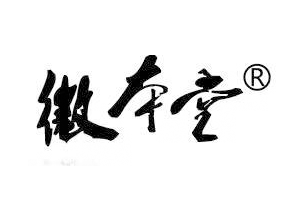 徽本堂®